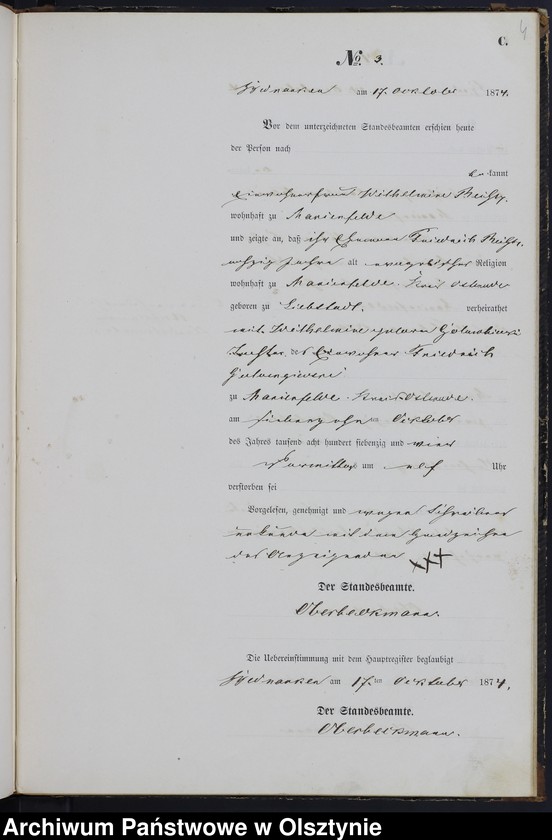 4
C.
No. 3.
am 17. October 1874.
Vor dem unterzeichneten Standesbeamten erschien heute
der Person nach
bekannt
Einwohnerfrau Wilhelmine
wohnhaft zu Marienfelde
und zeigte an, daß ihr Ehemann Friedrich
achtzig Jahre alt evangelischer Religion
wohnhaft zu Marienfelde Kreis Osterode
geboren zu Liebstadt. verheirathet
mit Wilhelmine geborn
Tochter des Einwohner Friedrich
zu Marienfelde. Kreis Osterode.
am siebenzehn ten October
des Jahres tausend acht hundert siebenzig und vier
Vormittags um elf Uhr
verstorben sei
Vorgelesen, genehmigt und wegen Schreibens
unkunde mit dem Handzeichen
des Anzeigenden xxx
Der Standesbeamte.
Oberbeckmann.
Die Uebereinstimmung mit dem Hauptregister beglaubigt
am 17. ten October 1874.
Der Standesbeamte.
Oberbeckmann.
Archiwum Państwowe w Olsztynie